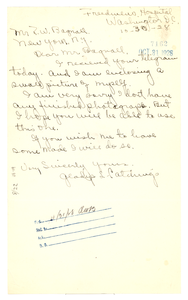 Freedmen's Hospital
Washington, D.C.
10-30-28
Mr. E.W. Bagnall
New York, N.Y.
Dear Mr. Bagnall
I received your telegram
today. And I am enclosing a
small picture of myself.
I am very sorry I don't have
any finished photograph. But
I hope you will be able to use
this one.
If you wish me to have
some made I will do so.
Very Sincerely Yours,
Gladys L. Catchings